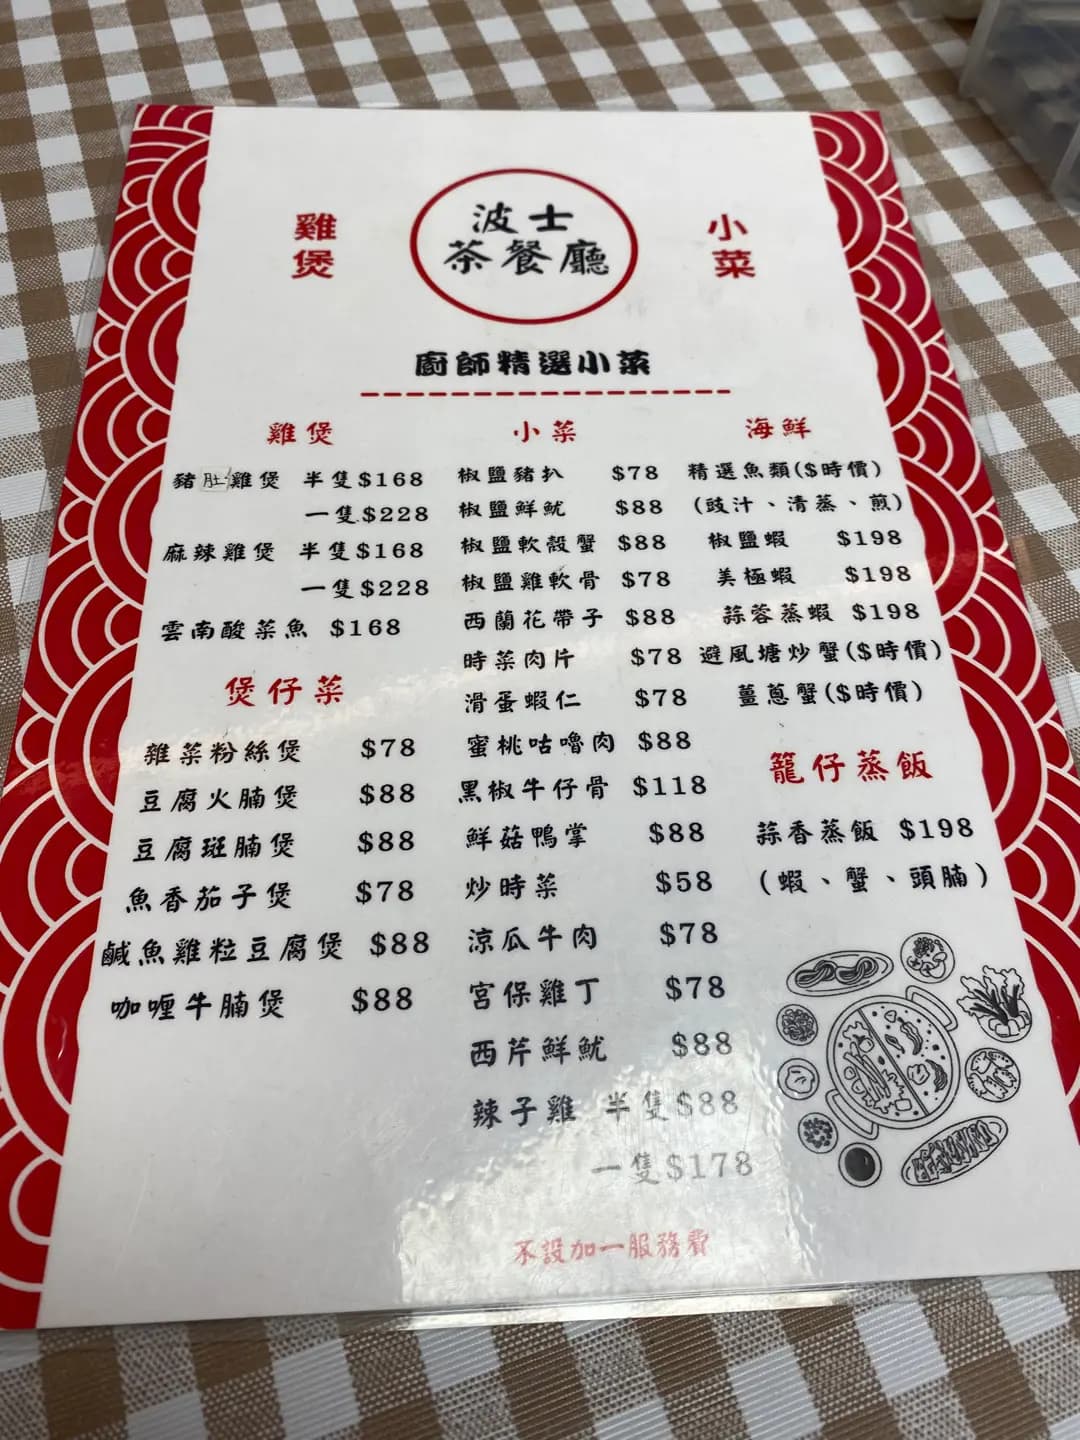 雞煲
波士
茶餐廳
小菜
廚師精選小菜
雞煲
豬肚雞煲 半隻$168
一隻$228
麻辣雞煲 半隻$168
一隻$228
雲南酸菜魚 $168
煲仔菜
雜菜粉絲煲 $78
豆腐火腩煲 $88
豆腐斑腩煲 $88
魚香茄子煲 $78
鹹魚雞粒豆腐煲 $88
咖喱牛腩煲 $88
小菜
椒鹽豬扒 $78
椒鹽鮮魷 $88
椒鹽軟殼蟹 $88
椒鹽雞軟骨 $78
西蘭花帶子 $88
時菜肉片 $78
滑蛋蝦仁 $78
蜜桃咕嚕肉 $88
黑椒牛仔骨 $118
鮮菇鴨掌 $88
炒時菜 $58
涼瓜牛肉 $78
宮保雞丁 $78
西芹鮮魷 $88
辣子雞 半隻$88
一隻$178
海鮮
精選魚類($時價)
(豉汁、清蒸、煎)
椒鹽蝦 $198
美極蝦 $198
蒜蓉蒸蝦 $198
避風塘炒蟹($時價)
薑蔥蟹($時價)
籠仔蒸飯
蒜香蒸飯 $198
(蝦、蟹、頭腩)
不設加一服務費